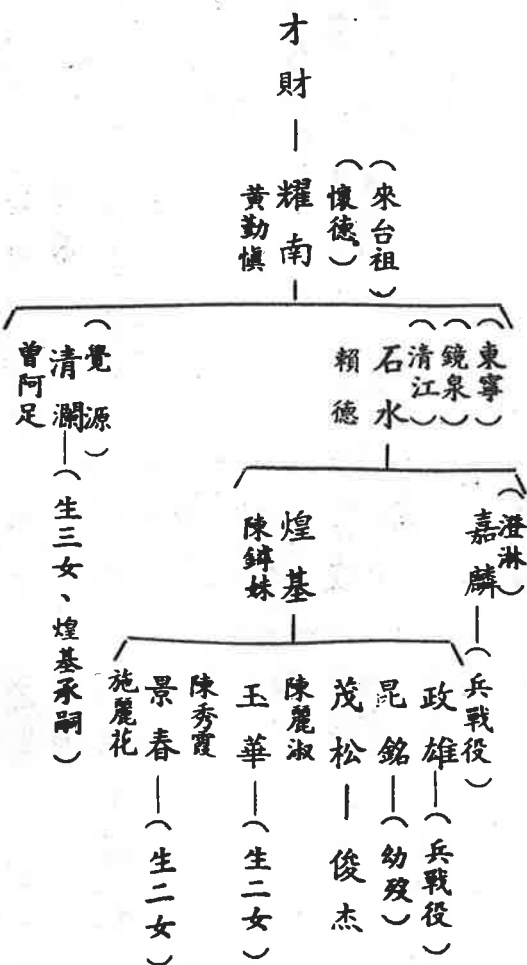 才財
(來台祖)
(懷德)
耀南
黃勤慎
(東寧)
(鏡泉)
(清江)
石水
賴德
(覺源)
清瀾
(生三女、煌基承嗣)
曾阿足
(澄淋)
嘉麟
(兵戰役)
煌基
陳錊妹
政雄
(兵戰役)
昆銘
(幼歿)
茂松
俊杰
陳麗淑
玉華
(生二女)
陳秀霞
景春
(生二女)
施麗花